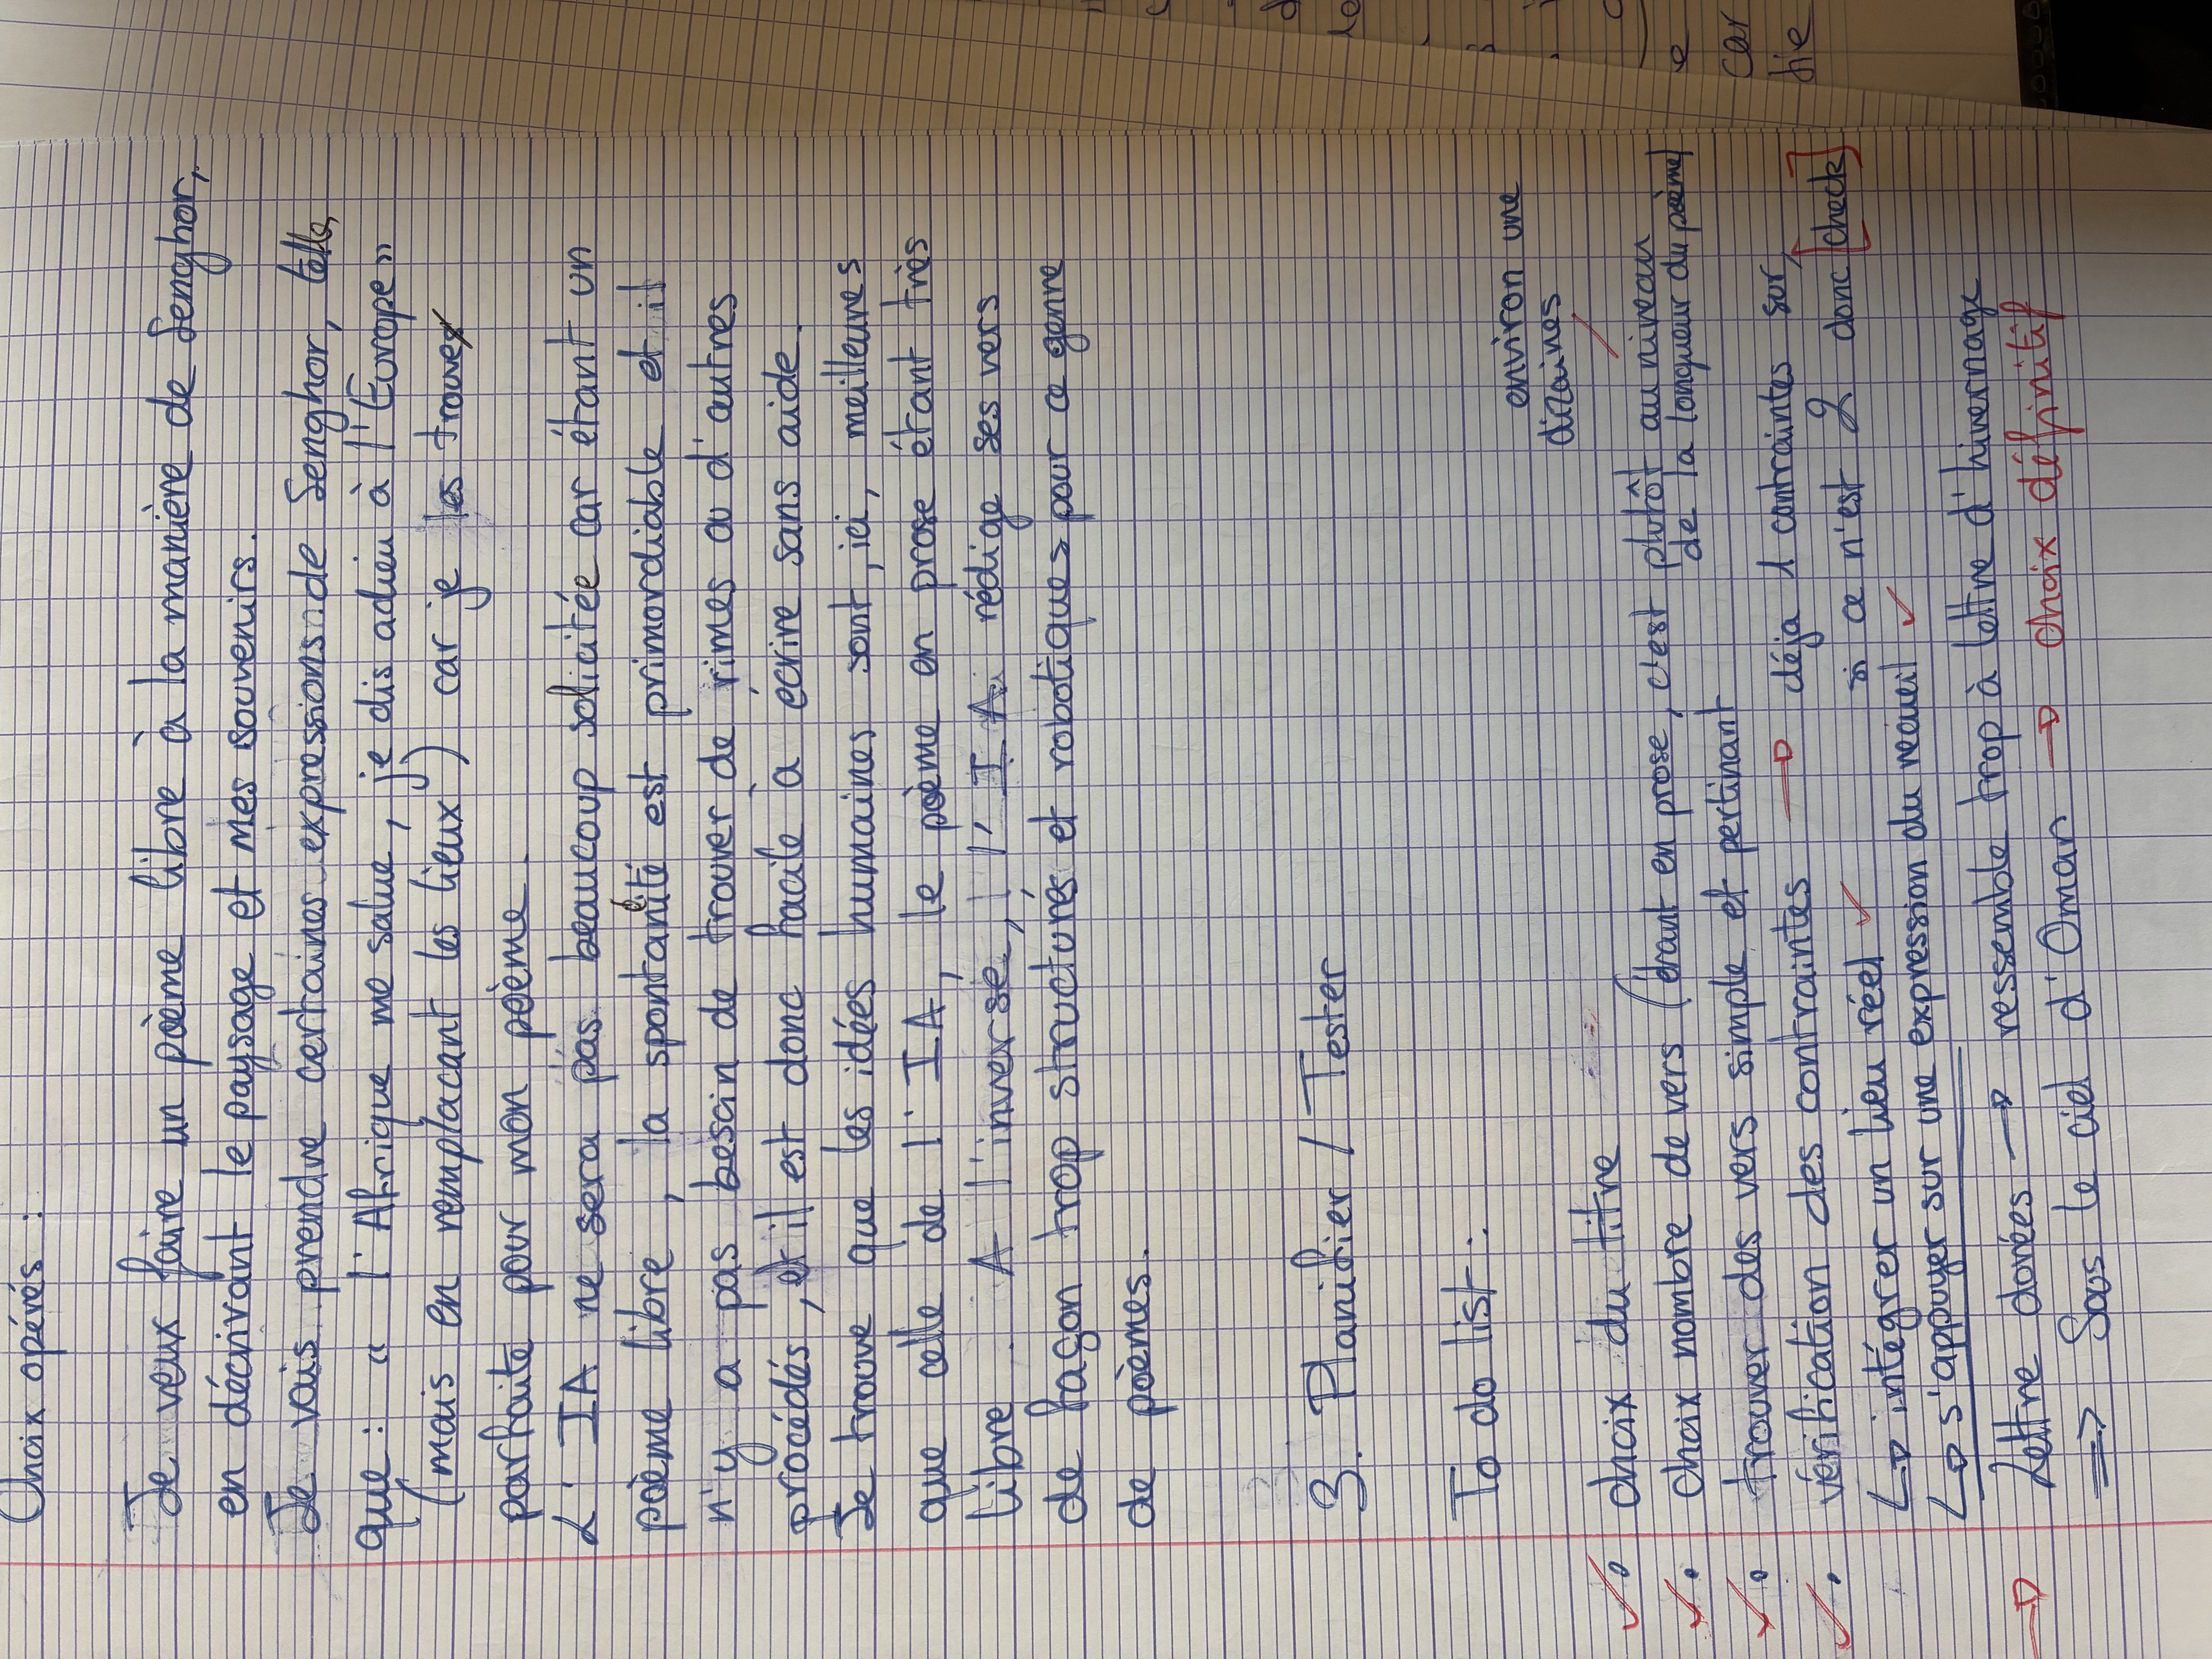 Choix opérés :
Je veux faire un poème libre à la manière de Senghor,
en décrivant le paysage et mes souvenirs.
Je vais prendre certaines expressions de Senghor, telle
que : " l'Afrique me salue, je dis adieu à l'Europe "
(mais en remplacant les lieux) car je les trouve
parfaite pour mon poème.
L'IA ne sera pas beaucoup solicitée car étant un
poème libre, la spontanéité est primordiable et il
n'y a pas besoin de trouver de rimes ou d'autres
procédés, il est donc facile à écrire sans aide.
Je trouve que les idées humaines sont, ici, meilleures
que celle de l'IA, le poème en prose étant très
libre. A l'inverse, l'IA rédige ses vers
de façon trop structurés et robotiques pour ce genre
de poèmes.
3. Planifier / Tester
To do list :
environ une
dizaines
• choix du titre
• choix nombre de vers (étant en prose, c'est plutôt au niveau
de la longueur du poème)
• trouver des vers simple et pertinant
• vérification des contraintes → déja 1 contraintes sur,
si ce n'est 2 donc [check]
↳ intégrer un lieu réel ✓
↳ s'appuyer sur une expression du recueil ✓
→ Lettre dorées → ressemble trop à lettre d'hivernage
⇒ Sous le ciel d'Oman → choix définitif
car